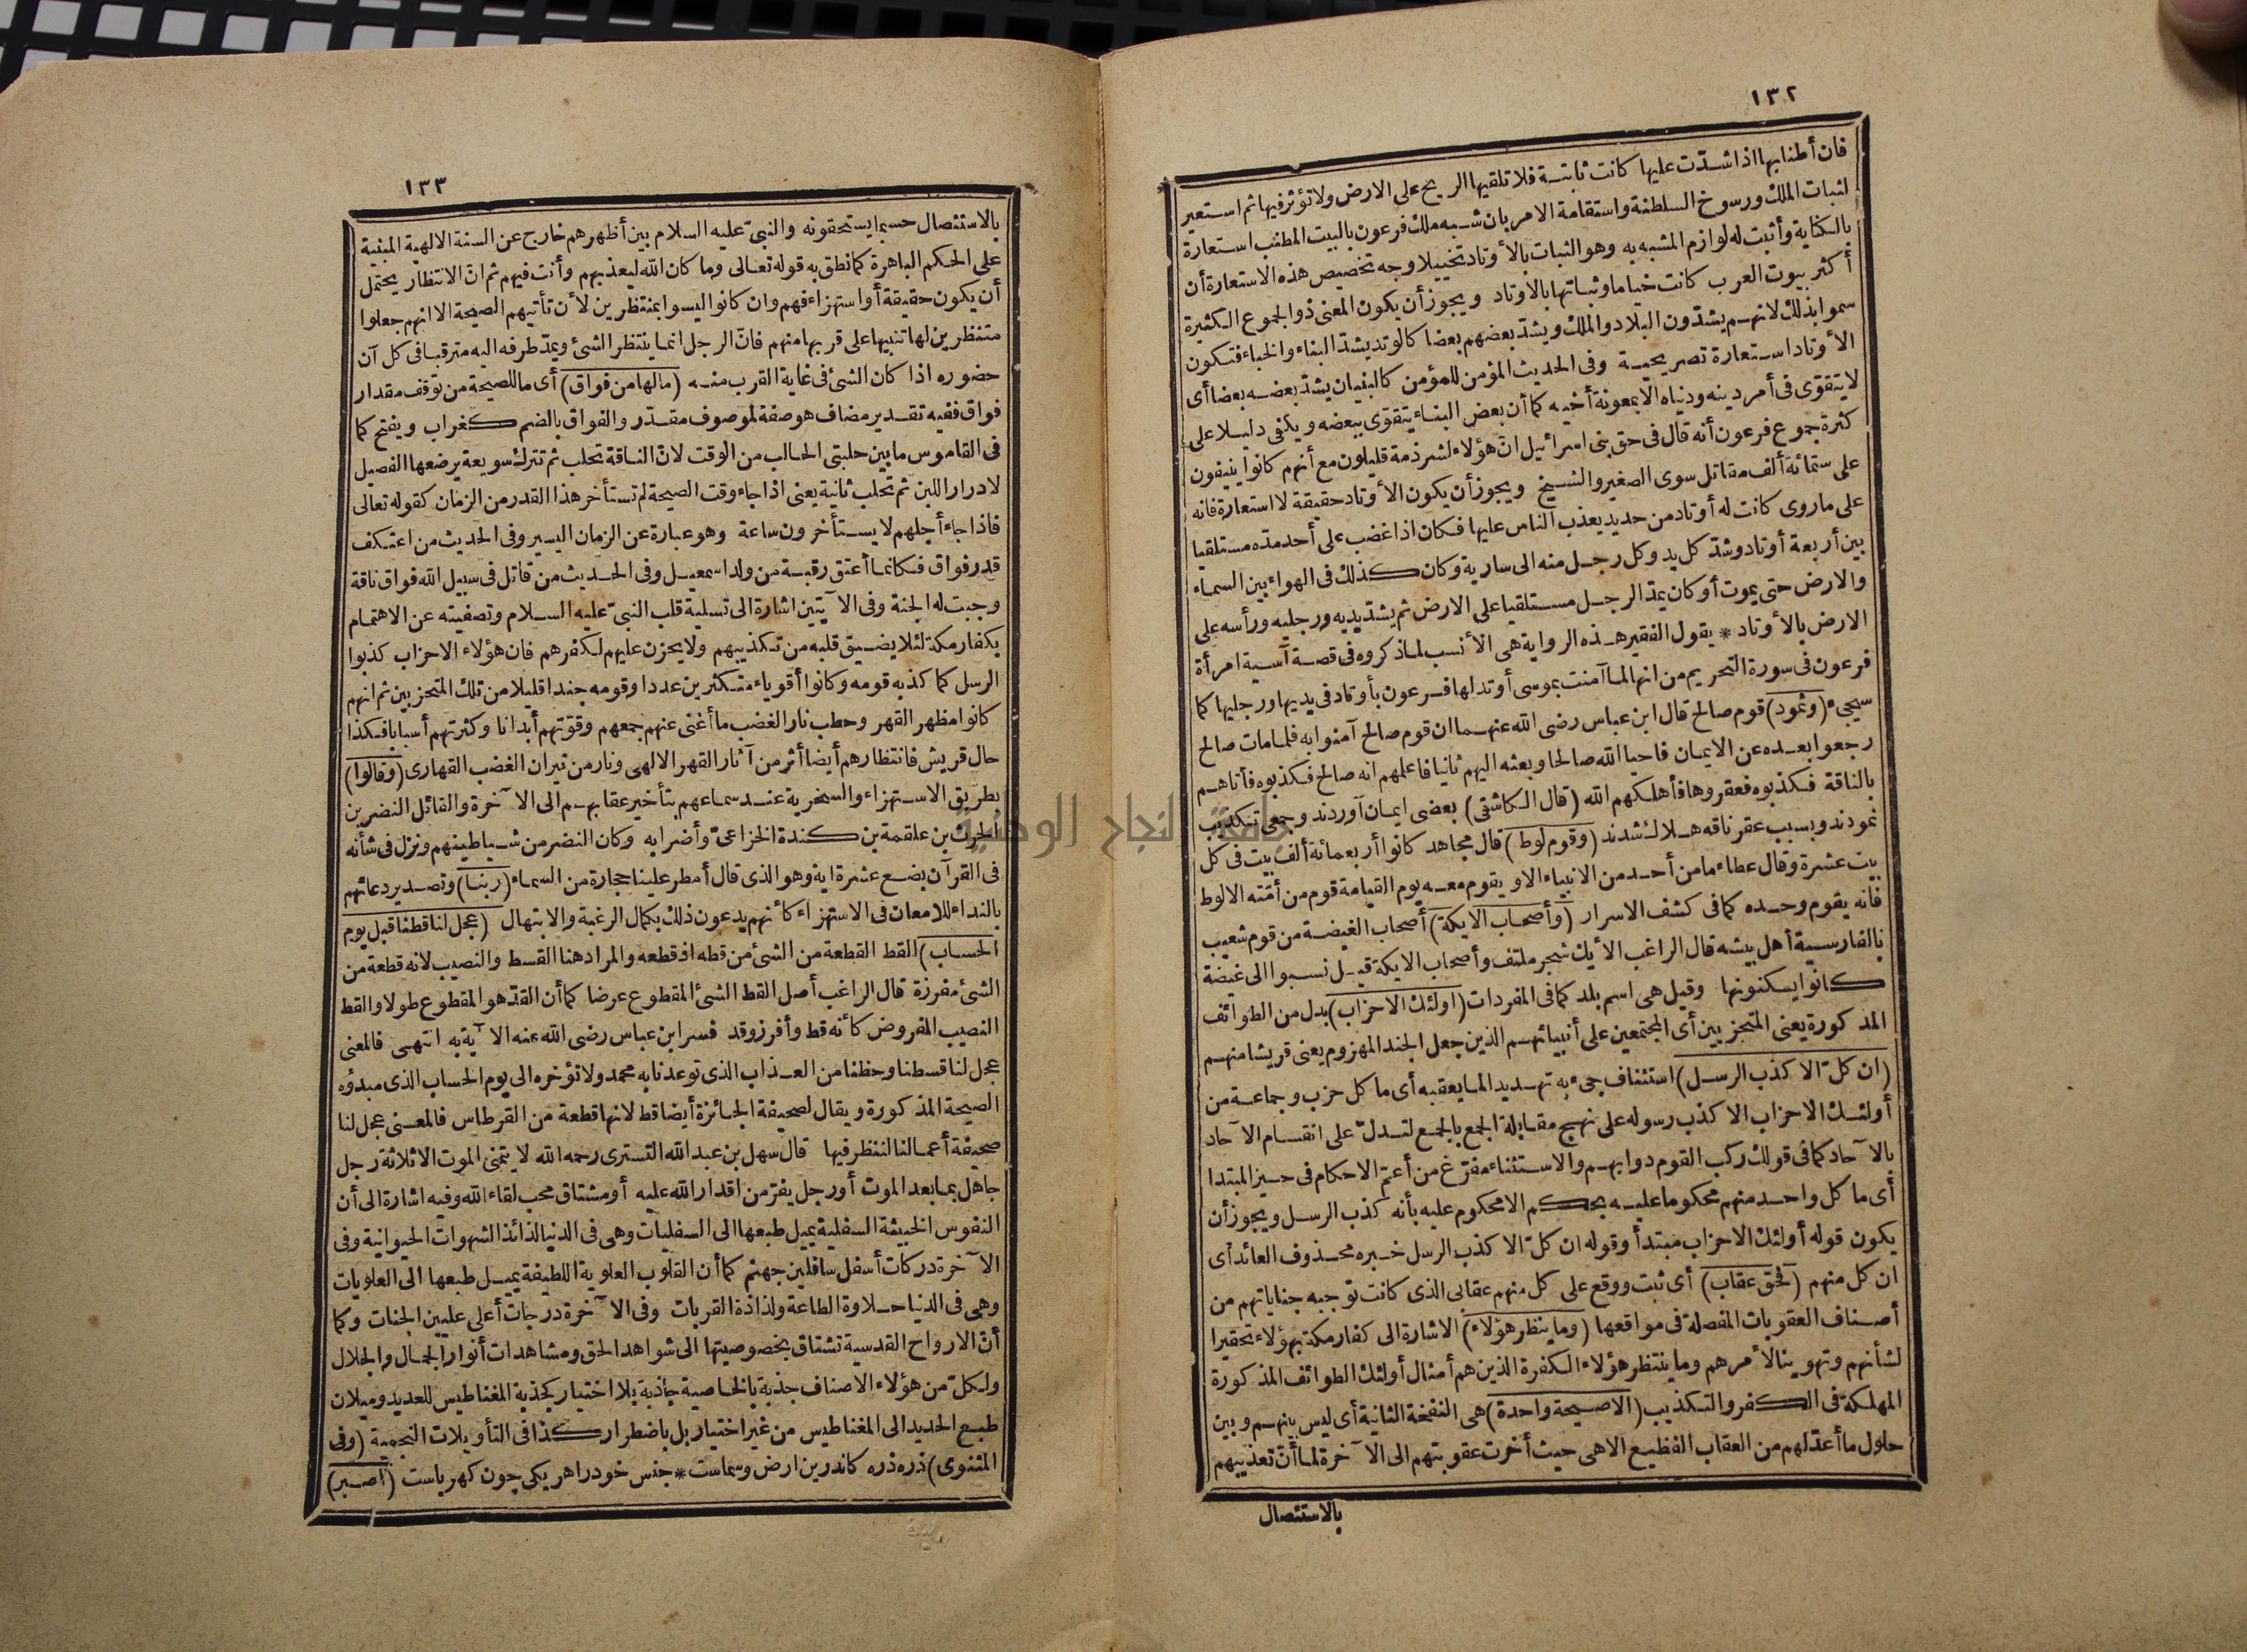 ١٣٢
فان أطنابها اذا شدّت عليها كانت ثابتة فلا تلقيها الريح على الارض ولا تؤثر فيها ثم استعير
لثبات الملك ورسوخ السلطنة واستقامة الامر بان شبه ملك فرعون بالبيت المطنب استعارة
بالكناية وأثبت له لوازم المشبه به وهو الثبات بالأوتاد تخييلا وجه تخصيص هذه الاستعارة أن
أكثر بيوت العرب كانت خياما وثباتها بالاوتاد ويجوز أن يكون المعنى ذو الجموع الكثيرة
سموا بذلك لانهم يشدّون البلاد والملك ويشدّ بعضهم بعضا كالوتد يشدّ البناء والخباء فتكون
الأوتاد استعارة تصريحية وفى الحديث المؤمن للمؤمن كالبنيان يشدّ بعضه بعضا أى
لا يتقوّى فى أمر دينه ودنياه الا بمعونة أخيه كما أن بعض البناء يتقوّى ببعضه ويكفى دليلا على
كثرة جموع فرعون أنه قال فى حق بنى اسرائيل انّ هؤلاء لشرذمة قليلون مع أنهم كانوا ينيفون
على ستمائة ألف مقاتل سوى الصغير والشيخ ويجوز أن يكون الأوتاد حقيقة لا استعارة فانه
على ما روى كانت له أوتاد من حديد يعذب الناس عليها فكان اذا غضب على أحد مدّه مستلقيا
بين أربعة أوتاد وشدّ كل يد وكل رجل منه الى سارية وكان كذلك فى الهواء بين السماء
والارض حتى يموت أو كان يمدّ الرجل مستلقيا على الارض ثم يشدّ يديه ورجليه ورأسه على
الارض بالأوتاد * يقول الفقير هذه الرواية هى الأنسب لما ذكروه فى قصة آسية امرأة
فرعون فى سورة التحريم من انها لما آمنت بموسى أوتد لها فرعون بأوتاد فى يديها ورجليها كما
سيجىء (وثمود) قوم صالح قال ابن عباس رضى الله عنهما ان قوم صالح آمنوا به فلما مات صالح
رجعوا بعده عن الايمان فاحيا الله صالحا وبعثه اليهم ثانيا فاعلمهم انه صالح فكذبوه فأتاهم
بالناقة فكذبوه فعقروها فأهلكهم الله (قال الكاشفى) بعضى ايمان آوردند وجمعى تكذيب
نمودند وبسبب عقر ناقه هلاك شدند (وقوم لوط) قال مجاهد كانوا أربعمائة ألف بيت فى كل
بيت عشرة وقال عطاء ما من أحد من الانبياء الا و يقوم معه يوم القيامة قوم من أمّته الا لوط
فانه يقوم وحده كما فى كشف الاسرار (وأصحاب الايكة) أصحاب الغيضة من قوم شعيب
بالفارسية أهل بيشه قال الراغب الأيك شجر ملتف وأصحاب الايكة قيل نسبوا الى غيضة
كانوا يسكنونها وقيل هى اسم بلد كما فى المفردات (اولئك الاحزاب) بدل من الطوائف
المذكورة يعنى المتحزبين أى المجتمعين على أنبيائهم الذين جعل الجند المهزوم يعنى قريشا منهم
(ان كلّ الا كذب الرسل) استئناف جىء به تهديدا لما يعقبه أى ما كل حزب وجماعة من
أولئك الاحزاب الا كذب رسوله على نهج مقابلة الجمع بالجمع لتدلّ على انقسام الآحاد
بالآحاد كما فى قولك ركب القوم دوابهم والاستثناء مفرّغ من أعمّ الاحكام فى حيز المبتدا
أى ما كل واحد منهم محكوما عليه بحكم الا محكوم عليه بأنه كذب الرسل ويجوز أن
يكون قوله أولئك الاحزاب مبتدأ وقوله ان كلّ الا كذب الرسل خبره محذوف العائد أى
ان كل منهم (فحق عقاب) أى ثبت ووقع على كل منهم عقابى الذى كانت توجبه جناياتهم من
أصناف العقوبات المفصلة فى مواقعها (وما ينظر هؤلاء) الاشارة الى كفار مكة بهؤلاء تحقيرا
لشأنهم وتهوينا لأمرهم وما ينتظر هؤلاء الكفرة الذين هم أمثال أولئك الطوائف المذكورة
المهلكة فى الكفر والتكذيب (الا صيحة واحدة) هى النفخة الثانية أى ليس بينهم وبين
حلول ما أعدّ لهم من العقاب الفظيع الا هى حيث أخرت عقوبتهم الى الآخرة لما أنّ تعذيبهم
بالاستئصال
١٣٣
بالاستئصال حسبما يستحقونه والنبىّ عليه السلام بين أظهرهم خارج عن السنة الالهية المبنية
على الحكم الباهرة كما نطق به قوله تعالى وما كان الله ليعذبهم وأنت فيهم ثم انّ الانتظار يحتمل
أن يكون حقيقة أو استهزاء فهم وان كانوا ليسوا بمنتظرين لأن تأتيهم الصيحة الا انهم جعلوا
منتظرين لها تنبيها على قربها منهم فانّ الرجل انما ينتظر الشئ ويمدّ طرفه اليه مترقبا فى كل آن
حضوره اذا كان الشئ فى غاية القرب منه (ما لها من فواق) أى ما للصيحة من توقف مقدار
فواق ففيه تقدير مضاف هو صفة لموصوف مقدّر والفواق بالضم كغراب ويفتح كما
فى القاموس ما بين حلبتى الحالب من الوقت لانّ الناقة تحلب ثم تترك سويعة يرضعها الفصيل
لادرار اللبن ثم تحلب ثانية يعنى اذا جاء وقت الصيحة لم تستأخر هذا القدر من الزمان كقوله تعالى
فاذا جاء أجلهم لا يستأخرون ساعة وهو عبارة عن الزمان اليسير وفى الحديث من اعتكف
قدر فواق فكانما أعتق رقبة من ولد اسمعيل وفى الحديث من قاتل فى سبيل الله فواق ناقة
وجبت له الجنة وفى الآيتين اشارة الى تسلية قلب النبىّ عليه السلام وتصفيته عن الاهتمام
بكفار مكة لئلا يضيق قلبه من تكذيبهم ولا يحزن عليهم لكفرهم فان هؤلاء الاحزاب كذبوا
الرسل كما كذبه قومه وكانوا أقوياء متكثرين عددا وقومه جندا قليلا من تلك المتحزبين ثم انهم
كانوا مظهر القهر وحطب نار الغضب ما أغنى عنهم جمعهم وقوّتهم أبدانا وكثرتهم أسبابا فكذا
حال قريش فانتظارهم أيضا أثر من آثار القهر الالهى ونار من نيران الغضب القهارى (وقالوا)
بطريق الاستهزاء والسخرية عند سماعهم بتأخير عقابهم الى الآخرة والقائل النضر بن
الحرث بن علقمة بن كندة الخزاعىّ وأضرابه وكان النضر من شياطينهم ونزل فى شأنه
فى القرآن بضع عشرة اية وهو الذى قال أمطر علينا حجارة من السماء (ربنا) وتصدير دعائهم
بالنداء للامعان فى الاستهزاء كأنهم يدعون ذلك بكمال الرغبة والابتهال (عجل لنا قطنا قبل يوم
الحساب) القط القطعة من الشئ من قطه اذ قطعه والمراد هنا القسط والنصيب لانه قطعة من
الشئ مفرزة قال الراغب أصل القط الشئ المقطوع عرضا كما أن القدّ هو المقطوع طولا والقط
النصيب المفروض كأنه قط وأفرز وقد فسر ابن عباس رضى الله عنه الآية به انتهى فالمعنى
عجل لنا قسطنا وحظنا من العذاب الذى توعدنا به محمد ولا تؤخره الى يوم الحساب الذى مبدؤه
الصيحة المذكورة ويقال لصحيفة الجائزة أيضا قط لانها قطعة من القرطاس فالمعنى عجل لنا
صحيفة أعمالنا لننظر فيها قال سهل بن عبد الله التسترى رحمه الله لا يتمنى الموت الا ثلاثة رجل
جاهل بما بعد الموت أو رجل يفرّ من اقدار الله عليه أو مشتاق محب لقاء الله وفيه اشارة الى أن
النفوس الخبيثة السفلية يميل طبعها الى السفليات وهى فى الدنيا لذائذ الشهوات الحيوانية وفى
الآخرة دركات أسفل سافلين جهنم كما أن القلوب العلوية اللطيفة يميل طبعها الى العلويات
وهى فى الدنيا حلاوة الطاعة ولذاذة القربات وفى الآخرة درجات أعلى عليين الجنات وكما
أنّ الارواح القدسية تشتاق بخصوصيتها الى شواهد الحق ومشاهدات أنوار الجمال والجلال
ولكلّ من هؤلاء الاصناف جذبة بالخاصية جاذبة بلا اختيار كجذبة المغناطيس للحديد وميلان
طبع الحديد الى المغناطيس من غير اختيار بل باضطرار كذا فى التأويلات النجمية (وفى
المثنوى) ذره ذره كاندرين ارض وسماست * جنس خودرا هر يكى چون كهرباست (اصبر)
جامعة النجاح الوطنية